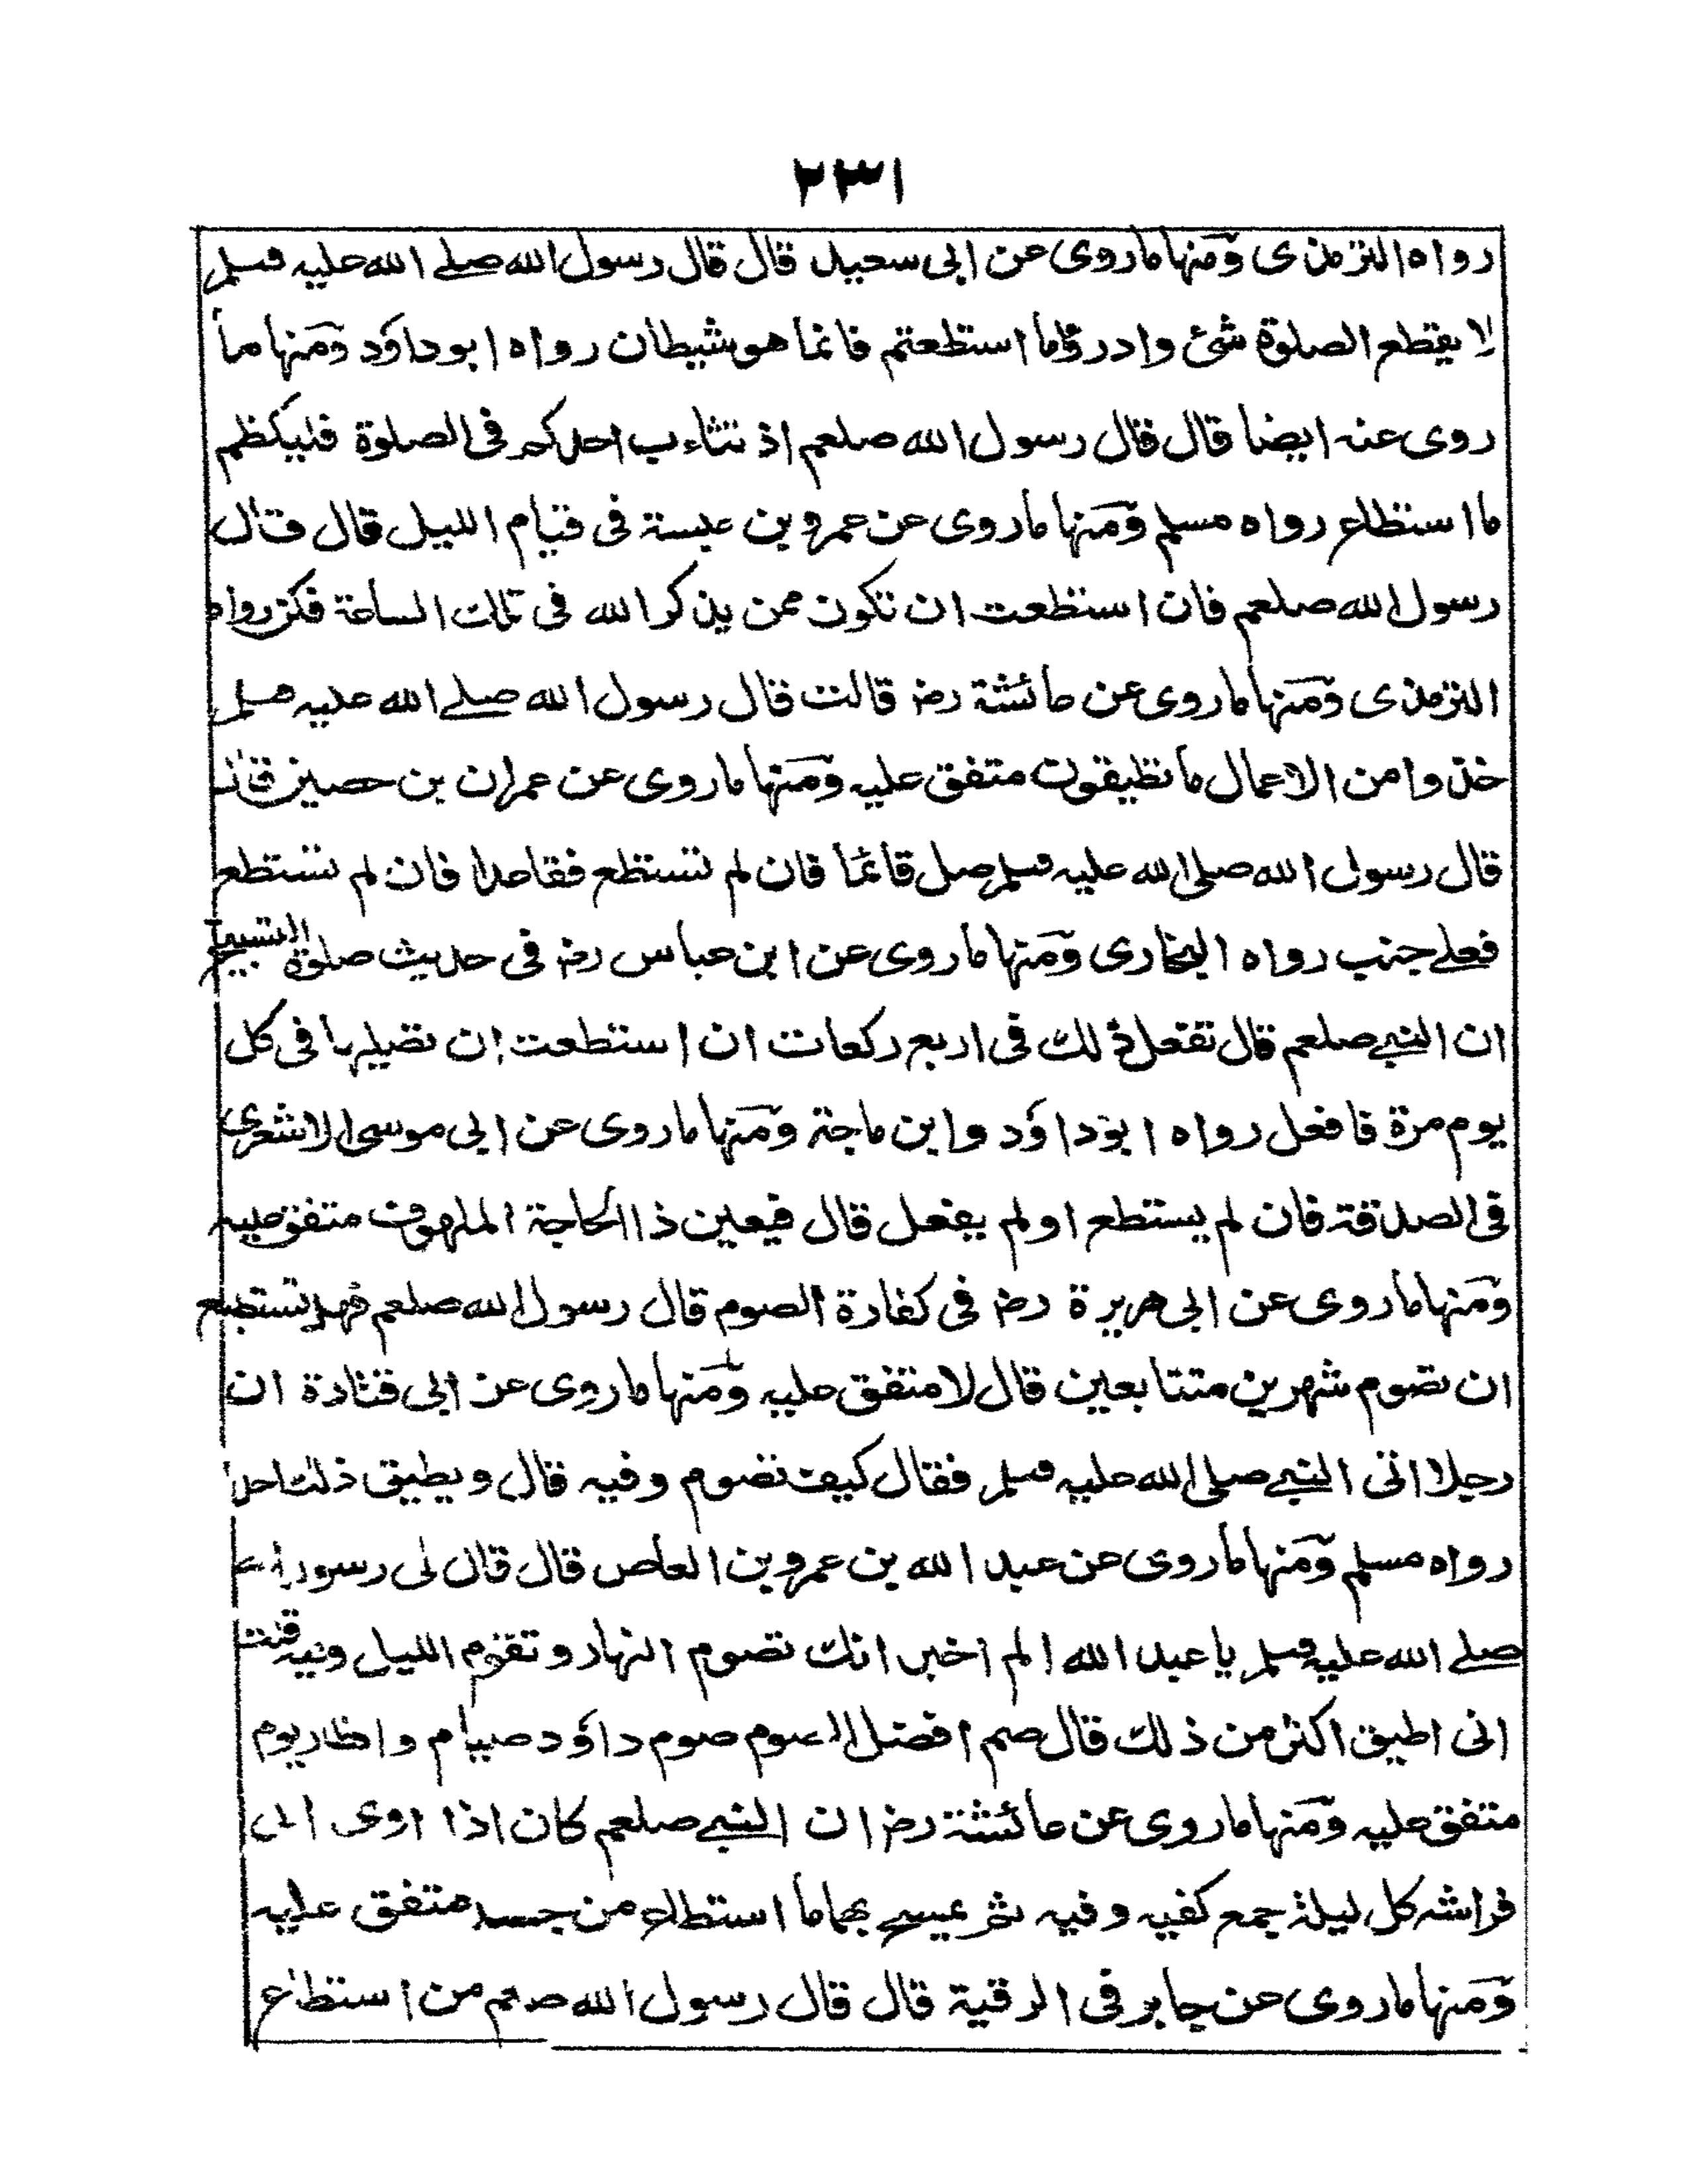 ٢٣١
رواه الترمذى ومنها ماروى عن ابى سعيد قال قال رسول الله صلے الله عليه وسلم
لا يقطع الصلوة شئ وادرؤاما استطعتم فانما هو شيطان رواه ابو داؤد ومنها ما
روى عنه ايضا قال قال رسول الله صلعم اذ تثاءب احدكم فى الصلوة فليكظم
ما استطاع رواه مسلم ومنها ماروى عن عمرو بن عبسة فى قيام الليل قال قال
رسول الله صلعم فان استطعت ان تكون ممن يذكر الله فى تلك الساعة فكن رواه
الترمذى ومنها ماروى عن عائشة رضـ قالت قال رسول الله صلے الله عليه وسلم
خذوا من الاعمال ما تطيقون متفق عليه ومنها ماروى عن عمران بن حصين قال
قال رسول الله صلى الله عليه وسلم صل قائما فان لم تستطع فقاعدا فان لم تستطع
فعلے جنب رواه البخارى ومنها ماروى عن ابن عباس رضـ فى حديث صلوة التسبيح
ان النبے صلعم قال تفعل ذلك فى اربع ركعات ان استطعت ان تصليها فى كل
يوم مرة فافعل رواه ابوداؤد وابن ماجة ومنها ماروى عن ابى موسى الاشعرى
فى الصدقة فان لم يستطع اولم يفعل قال فيعين ذا الحاجة الملهوف متفق عليه
ومنها ماروى عن ابى هريرة رضـ فى كفارة الصوم قال رسول الله صلعم فهل تستطيع
ان تصوم شهرين متتابعين قال لا متفق عليه ومنها ماروى عن ابى قتادة ان
رجلا اتى النبے صلى الله عليه وسلم فقال كيف تصوم وفيه قال ويطيق ذلك احد
رواه مسلم ومنها ماروى عن عبد الله بن عمرو بن العاص قال قال لى رسول الله
صلے الله عليه وسلم يا عبد الله الم اخبر انك تصوم النهار وتقوم الليل وفيه قلت
انى اطيق اكثر من ذلك قال صم افضل الصوم صوم داؤد صيام وافطار يوم
متفق عليه ومنها ماروى عن عائشة رضـ ان النبے صلعم كان اذا اوى الى
فراشه كل ليلة جمع كفيه وفيه ثم يمسح بهما ما استطاع من جسده متفق عليه
ومنها ماروى عن جابر فى الرقية قال قال رسول الله صلعم من استطاع